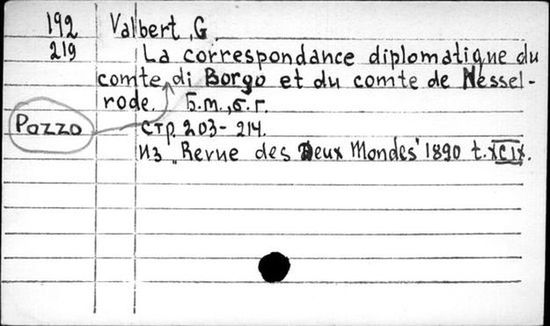 192 Valbert, G.
219 La correspondance diplomatique du
comte di Borgo et du comte de Nessel-
rode. Б.м., б.г.
Pozzo
стр. 203-214.
Из „Revue des Deux Mondes" 1890 t. XCIX.